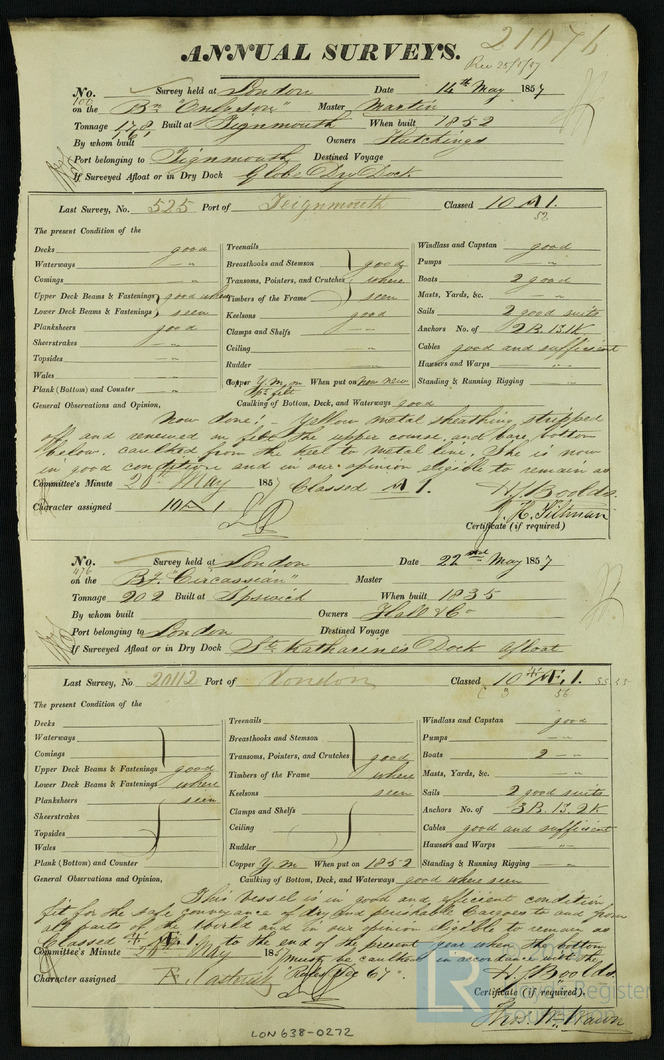 21076
Rec 25/5/57
ANNUAL SURVEYS.
No. 100 Survey held at London Date 14th May 1857
on the Bn "Emperson" Master Martin
Tonnage 178 161 Built at Teignmouth When built 1852
By whom built Owners Hutchings
Port belonging to Teignmouth Destined Voyage
If Surveyed Afloat or in Dry Dock Globe Dry Dock
Last Survey, No. 525 Port of Teignmouth Classed 10 A 1.
52
The present Condition of the
Decks good Treenails Windlass and Capstan good
Waterways " Breasthooks and Stemson good Pumps "
Comings " Transoms, Pointers, and Crutches where Boats 2 good
Upper Deck Beams & Fastenings good where Timbers of the Frame seen Masts, Yards, &c. "
Lower Deck Beams & Fastenings seen Keelsons good Sails 2 good suits
Planksheers good Clamps and Shelfs Anchors No. of 2B. 1S. 1K
Sheerstrakes " Ceiling Cables good and sufficient
Topsides " Rudder Hawsers and Warps "
Wales " Copper Y.M. on When put on now new Standing & Running Rigging "
Plank (Bottom) and Counter " felt
General Observations and Opinion, Caulking of Bottom, Deck, and Waterways good
Now done:- Yellow metal sheathing stripped
off and renewed in felt the upper course, and bare bottom
below, caulked from the keel to metal line. She is now
in good condition and in our opinion eligible to remain as
Committee's Minute 20th May 1857 Classed A 1.
H.J. Boolds.
Character assigned 10 A 1
J.H. Pitman
Certificate (if required)
No. 476 Survey held at London Date 22nd May 1857
on the Bk. "Circassian" Master
Tonnage 202 Built at Ipswich When built 1835
By whom built Owners Hall & Co
Port belonging to London Destined Voyage
If Surveyed Afloat or in Dry Dock St. Katharines Dock afloat
Last Survey, No. 20112 Port of London Classed 10 Æ 1.
56
The present Condition of the
Decks Treenails Windlass and Capstan good
Waterways Breasthooks and Stemson Pumps "
Comings Transoms, Pointers, and Crutches good Boats 2 "
Upper Deck Beams & Fastenings good Timbers of the Frame where Masts, Yards, &c. "
Lower Deck Beams & Fastenings where Keelsons seen Sails 2 good suits
Planksheers seen Clamps and Shelfs Anchors No. of 3B. 1S. 2K
Sheerstrakes Ceiling Cables good and sufficient
Topsides Rudder Hawsers and Warps "
Wales Copper Y.M When put on 1852 Standing & Running Rigging "
Plank (Bottom) and Counter
General Observations and Opinion, Caulking of Bottom, Deck, and Waterways good where seen
This vessel is in good and efficient condition
fit for the safe conveyance of dry and perishable Cargoes to and from
all parts of the World and in our opinion eligible to remain as
Classed Æ 1. to the end of the present year when the bottom
must be caulked in accordance with the
Committee's Minute May 185
Rules Sec 67.
H.J. Boolds.
Character assigned A. asterisk
Certificate (if required).
Thos. W. Wawn
LR Lloyd's Register Foundation
LON 638-0272